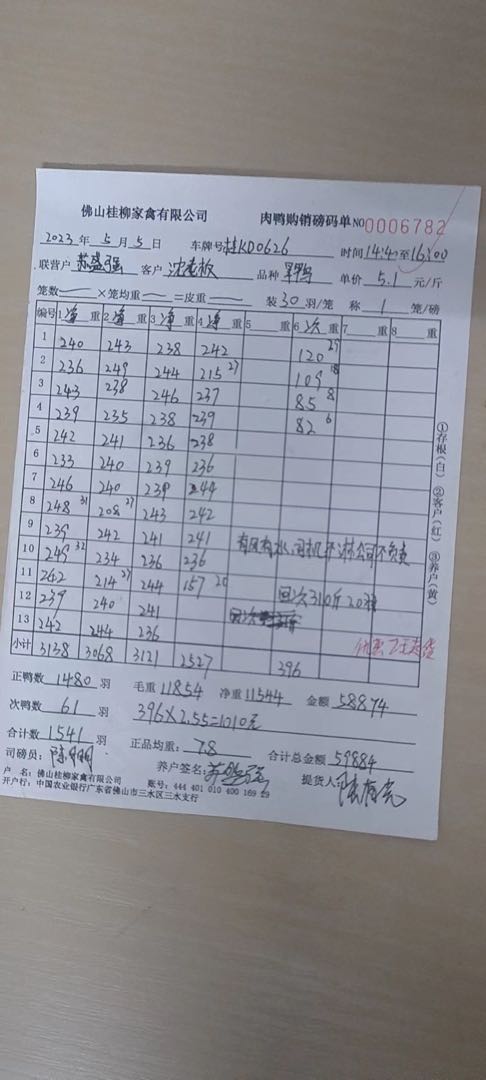 佛山桂柳家禽有限公司 肉鸭购销磅码单 NO 0006782
2023年5月5日 车牌号 桂KD0626 时间14:40至16:00
联营户 苏盛强 客户 沈老板 品种 单价 5.1 元/斤
笼数 ×笼均重 =皮重 装30羽/笼 称1笼/磅
编号 1净重 2净重 3净重 4净重 5 重 6次重 7 重 8 重
1 240 243 238 242 120 29
2 236 249 244 215 27 109 18
3 243 238 246 237 85 8
4 239 235 238 239 82 6
5 242 241 236 238
6 233 240 239 236
7 246 240 239 244
8 248 31 208 27 243 242
9 239 242 241 241 有风有水,司机不淋公司不负责
10 249 32 234 236 236
11 262 214 27 244 157 20 回次310斤20羽
12 239 240 241 回次
13 242 244 236
小计 3138 3068 3121 2527 396
正鸭数 1480 羽 毛重 11854 净重 11544 金额 58874
次鸭数 61 羽 396×2.55=1010元
合计数 1541 羽 正品均重: 7.8 合计总金额 59884
司磅员: 养户签名: 苏盛强 提货人:
户 名: 佛山桂柳家禽有限公司 账号: 444 401 010 400 169 29
开户行: 中国农业银行广东省佛山市三水区三水支行
①存根(白) ②客户(红) ③养户(黄)